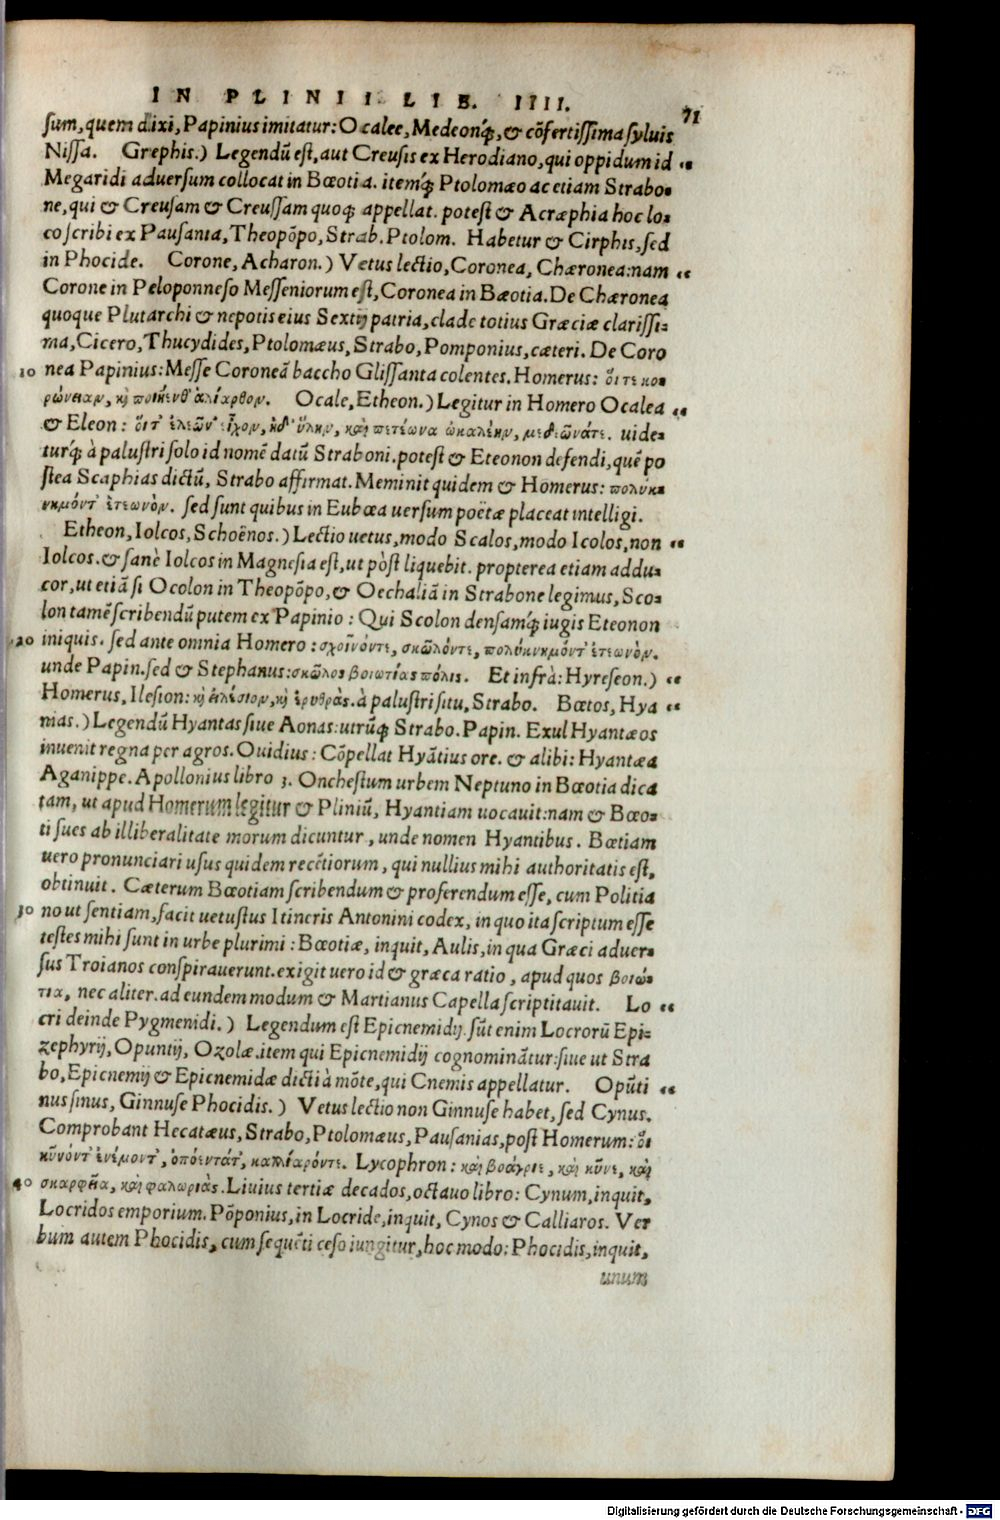 IN PLINII LIB. IIII. 71
sum, quem dixi, Papinius imitatur: Ocalee, Medeonq́;, & cõfertissima syluis
Nissa. Grephis.) Legendũ est, aut Creusis ex Herodiano, qui oppidum id „
Megaridi aduersum collocat in Bœotia. itemq́; Ptolomæo ac etiam Strabo-
ne, qui & Creusam & Creussam quoq; appellat. potest & Acræphia hoc lo-
co scribi ex Pausania, Theopõpo, Strab. Ptolom. Habetur & Cirphis, sed
in Phocide. Corone, Acharon.) Vetus lectio, Coronea, Chæronea: nam „
Corone in Peloponneso Messeniorum est, Coronea in Bœotia. De Chæronea
quoque Plutarchi & nepotis eius Sextij patria, clade totius Græciæ clarissi-
ma, Cicero, Thucydides, Ptolomæus, Strabo, Pomponius, cæteri. De Coro
10 nea Papinius: Messe Coroneã baccho Glissanta colentes. Homerus: ὅι τε κο-
ρώνειαν, κỳ ποιήενθ' ἁλίαρθον. Ocale, Etheon.) Legitur in Homero Ocalea „
& Eleon: ὅιτ' ἐλεῶν' εἶχον, ἠδ' ὕλην, καὶ πετεῶνα ὠκαλέην, μεδεῶνάτε. uide-
turq́; à palustri solo id nomẽ datũ Straboni. potest & Eteonon defendi, quẽ po
stea Scaphias dictũ, Strabo affirmat. Meminit quidem & Homerus: πολύκ-
νημόντ' ἐτεωνὸν. sed sunt quibus in Eubœa uersum poëtæ placeat intelligi.
Etheon, Iolcos, Schoënos.) Lectio uetus, modo Scalos, modo Icolos, non „
Iolcos. & sanè Iolcos in Magnesia est, ut pòst liquebit. propterea etiam addu-
cor, ut etiã si Ocolon in Theopõpo, & Oechaliã in Strabone legimus, Sco-
lon tamẽ scribendũ putem ex Papinio: Qui Scolon densamq́; iugis Eteonon
20 iniquis. sed ante omnia Homero: σχοῖνόντε, σκῶλόντε, πολύκνημόντ' ἐτεωνὸν.
unde Papin. sed & Stephanus: σκῶλος βοιωτίας πόλις. Et infrà: Hyreseon.) „
Homerus, Ilesion: κỳ εἰλέσιον, κỳ ἐρυθρὰς. à palustri situ, Strabo. Bœtos, Hya „
nias.) Legendũ Hyantas siue Aonas: utrũq; Strabo. Papin. Exul Hyantæos
inuenit regna per agros. Ouidius: Cõpellat Hyãtius ore. & alibi: Hyantæa
Aganippe. Apollonius libro 3. Onchestium urbem Neptuno in Bœotia dica
tam, ut apud Homerum legitur & Pliniũ, Hyantiam uocauit: nam & Bœo-
ti sues ab illiberalitate morum dicuntur, unde nomen Hyantibus. Bœtiam
uero pronunciari usus quidem recẽtiorum, qui nullius mihi authoritatis est,
obtinuit. Cæterum Bœotiam scribendum & proferendum esse, cum Politia
30 no ut sentiam, facit uetustus Itineris Antonini codex, in quo ita scriptum esse
testes mihi sunt in urbe plurimi: Bœotiæ, inquit, Aulis, in qua Græci aduer-
sus Troianos conspirauerunt. exigit uero id & græca ratio, apud quos βοιώ-
τια, nec aliter. ad eundem modum & Martianus Capella scriptitauit. Lo „
cri deinde Pygmenidi.) Legendum est Epicnemidij. sũt enim Locrorũ Epi-
zephyrij, Opuntij, Ozolæ. item qui Epicnemidij cognominãtur: siue ut Stra
bo, Epicnemij & Epicnemidæ dicti à mõte, qui Cnemis appellatur. Opũti „
nus sinus, Ginnuse Phocidis.) Vetus lectio non Ginnuse habet, sed Cynus.
Comprobant Hecatæus, Strabo, Ptolomæus, Pausanias, post Homerum: ὅι
κῦνόντ' ἐνέμοντ', ὀπόεντάτ', καλλίαρόντε. Lycophron: καὶ βοάγριε, καὶ κῦνε, καὶ
40 σκαρφεῖα, καὶ φαλωριὰς. Liuius tertiæ decados, octauo libro: Cynum, inquit,
Locridos emporium. Põponius, in Locride, inquit, Cynos & Calliaros. Ver
bum autem Phocidis, cum sequẽti ceso iungitur, hoc modo: Phocidis, inquit,
unum
Digitalisierung gefördert durch die Deutsche Forschungsgemeinschaft - DFG